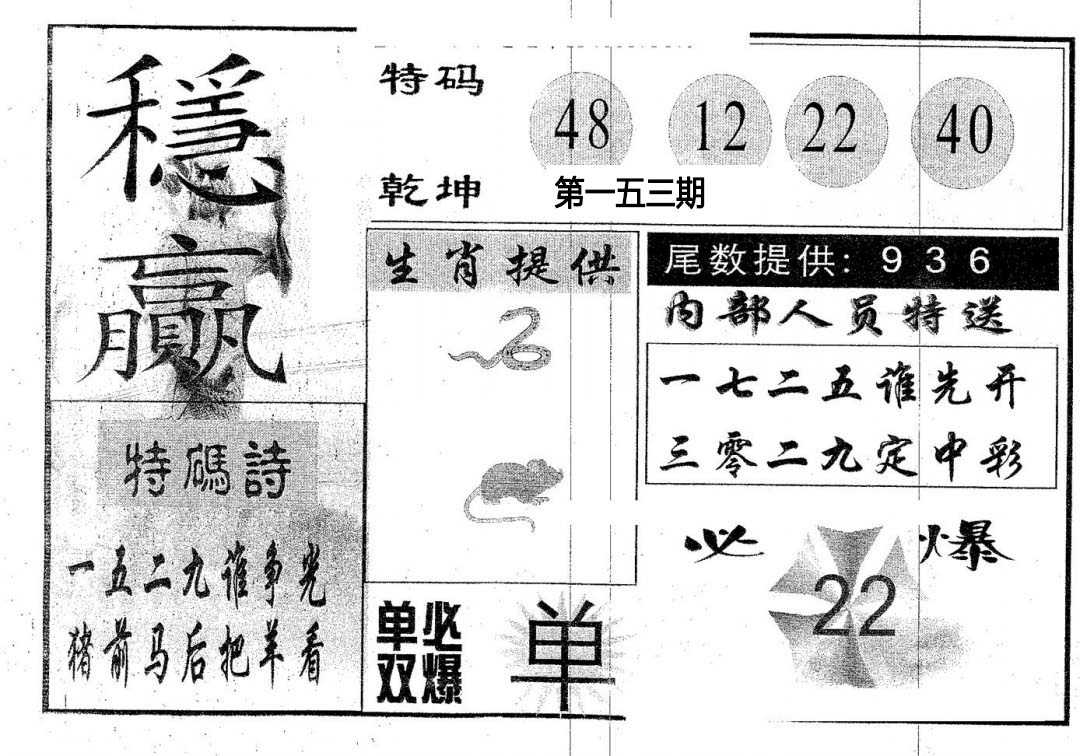 穩
贏
特码
48 12 22 40
乾坤
第一五三期
生肖提供
尾数提供: 9 3 6
内部人员特送
一七二五谁先开
三零二九定中彩
特碼詩
一五二九谁争光
猪前马后把羊看
单必
双爆
单
必 爆
22